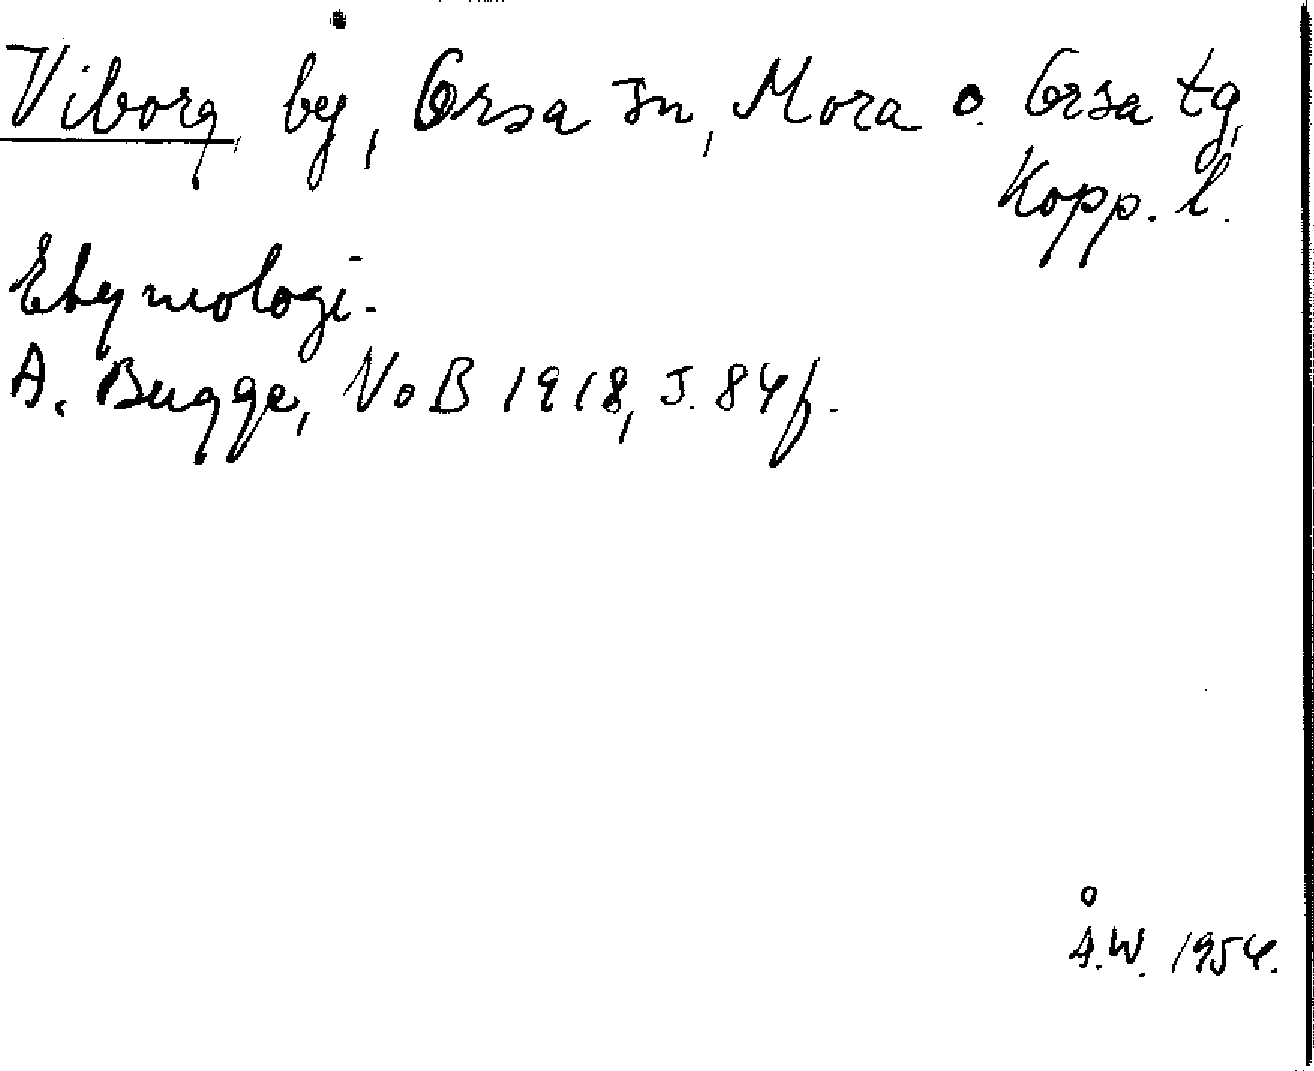 Viborg by, Orsa sn, Mora o. Orsa tg,
Kopp. l.
Etymologi.
A. Bugge, NoB 1918, s. 84 f.
Å.W. 1954.